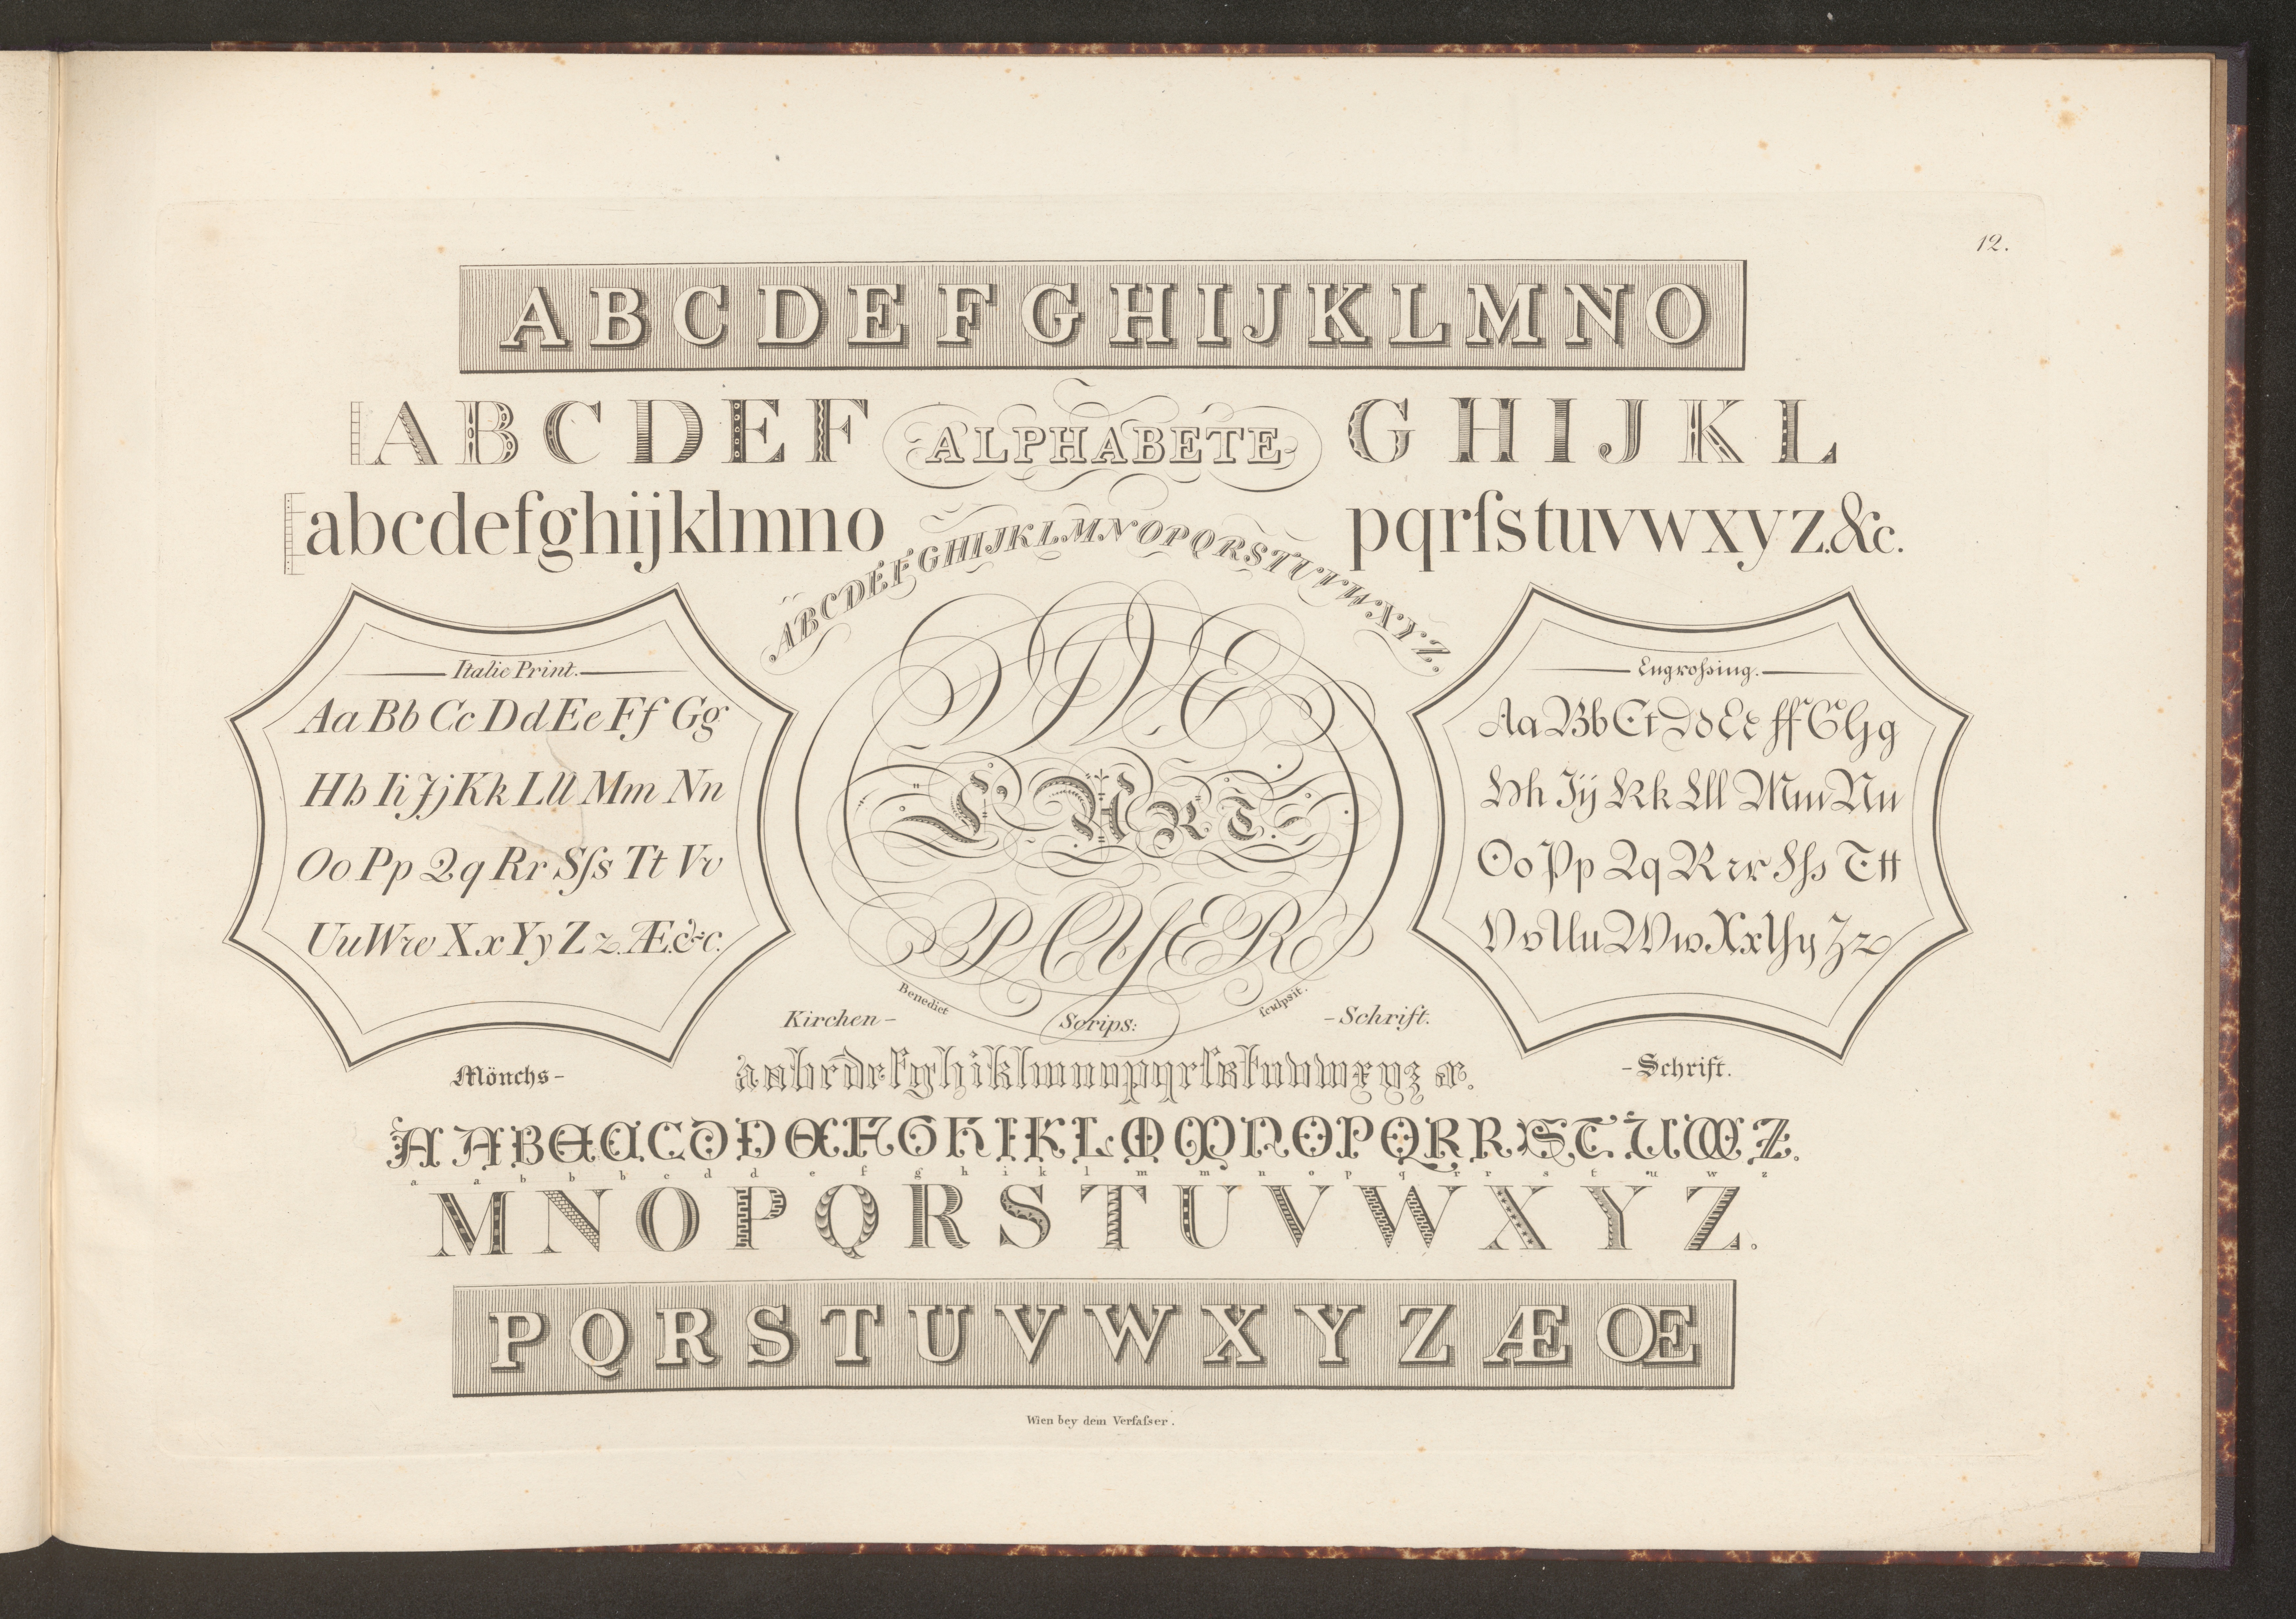 12.
A B C D E F G H I J K L M N O
A B C D E F ALPHABETE G H I J K L
abcdefghijklmno pqrſstuvwxyz.&c.
ABCDEFGHIJKLMNOPQRSTUVW.X.Y.Z.
Italic Print.
Aa Bb Cc Dd Ee Ff Gg
Hh Ii Jj Kk Ll Mm Nn
Oo Pp Qq Rr Sſs Tt Vv
Uu Ww Xx Yy Zz. Æ.&c.
DE
L'ART.
PAYER
Benedict Scrips: ſculpsit.
Engroſsing.
Aa Bb Cc Dd Ee Ff G Gg
Hh Jij Kk Lll Mm Nn
Oo Pp Qq R rr Sſs Ttt
Vv Uu Ww Xx Yy Zz
Kirchen- -Schrift.
Mönchs- -Schrift.
A A B B B C D D E F G H I K L M M N O P Q R R S T U W Z.
a a b b b c d d e f g h i k l m m n o p q r r s t u w z
M N O P Q R S T U V W X Y Z.
P Q R S T U V W X Y Z Æ Œ
Wien bey dem Verfaſser.